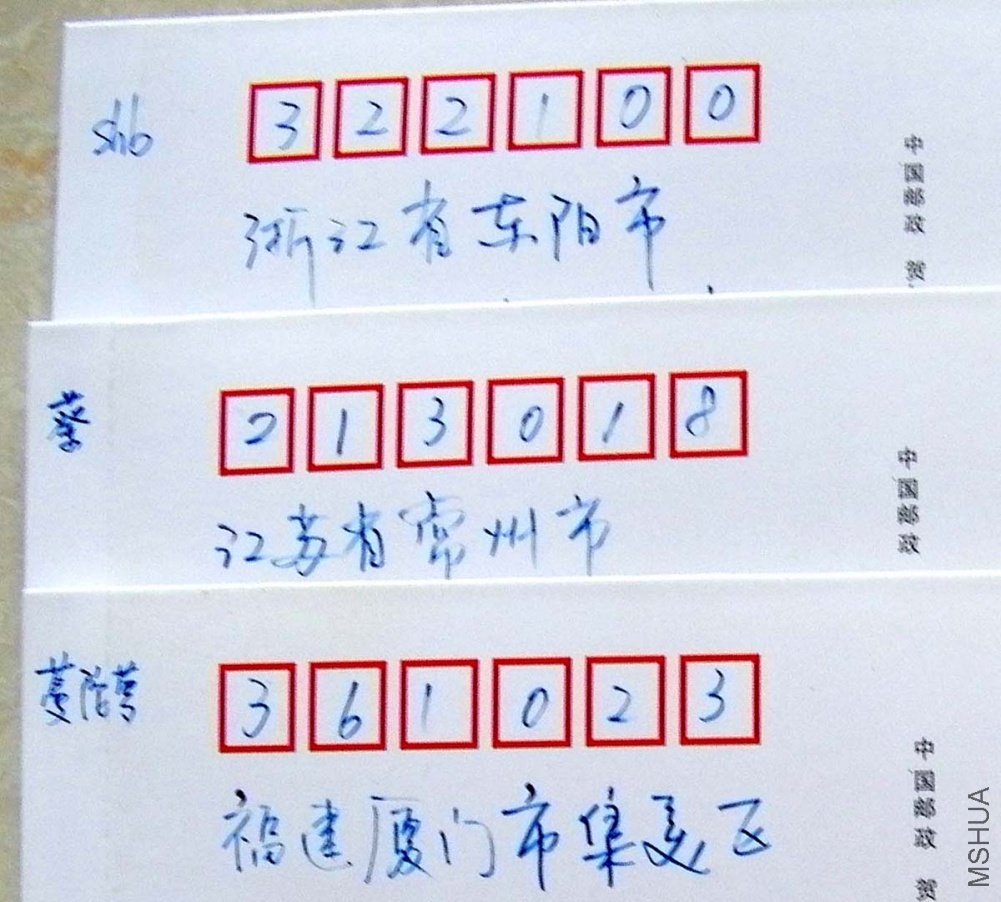 shb
322100
浙江省东阳市
中国邮政 贺
蔡
213018
江苏省常州市
中国邮政
361023
福建厦门市集美区
中国邮政 贺
MSHUA